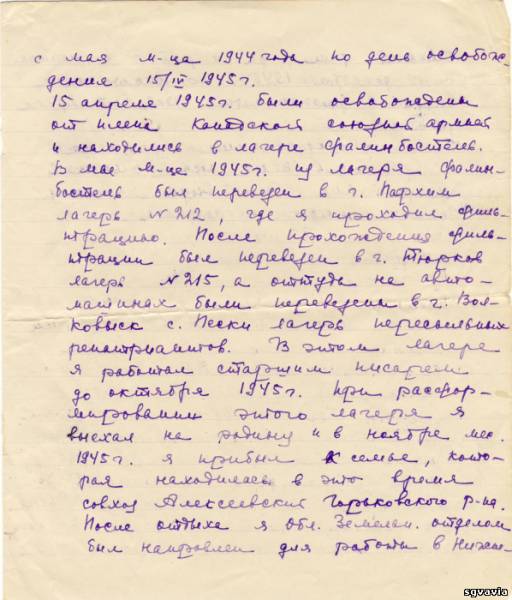 с мая м-ца 1944 года по день освобож-
дения 15/IV 1945г.
15 апреля 1945г. были освобождены
от плена Канадской союзной армией
и находились в лагере Фалинбостель.
В мае м-це 1945г. из лагеря Фалин-
бостель был переведен в г. Пархим
лагерь №212, где я проходил филь-
трацию. После прохождения филь-
трации был переведен в г. Тюрков
лагерь №215, а оттуда на авто-
машинах были переведены в г. Вол-
ковыск с. Пески лагерь пересыльных
репатриантов. В этом лагере
я работал старшим писарем
до октября 1945г. При расфор-
мировании этого лагеря я
выехал на родину и в ноябре мес.
1945г. я прибыл к семье, кото-
рая находилась в это время
совхоз Алексеевский Горьковского р-на.
После отдыха я Обл. Земельн. отделом
был направлен для работы в Нижне-
sgvavia